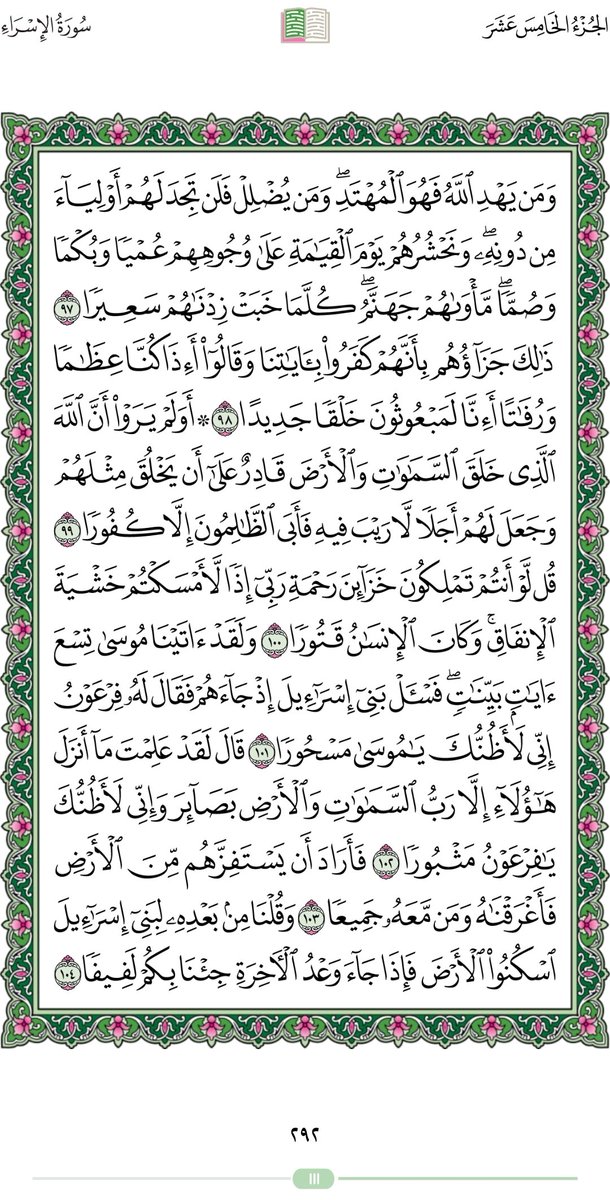 الجُزْءُ الخَامِسَ عَشَرَ
سُورَةُ الإِسْرَاءِ
وَمَن يَهْدِ ٱللَّهُ فَهُوَ ٱلْمُهْتَدِۖ وَمَن يُضْلِلْ فَلَن تَجِدَ لَهُمْ أَوْلِيَآءَ
مِن دُونِهِۦۖ وَنَحْشُرُهُمْ يَوْمَ ٱلْقِيَٰمَةِ عَلَىٰ وُجُوهِهِمْ عُمْيًا وَبُكْمًا
وَصُمًّاۖ مَّأْوَىٰهُمْ جَهَنَّمُۖ كُلَّمَا خَبَتْ زِدْنَٰهُمْ سَعِيرًا ٩٧
ذَٰلِكَ جَزَآؤُهُم بِأَنَّهُمْ كَفَرُواْ بِـَٔايَٰتِنَا وَقَالُوٓاْ أَءِذَا كُنَّا عِظَٰمًا
وَرُفَٰتًا أَءِنَّا لَمَبْعُوثُونَ خَلْقًا جَدِيدًا ٩٨ ۞ أَوَلَمْ يَرَوْاْ أَنَّ ٱللَّهَ
ٱلَّذِى خَلَقَ ٱلسَّمَٰوَٰتِ وَٱلْأَرْضَ قَادِرٌ عَلَىٰٓ أَن يَخْلُقَ مِثْلَهُمْ
وَجَعَلَ لَهُمْ أَجَلًا لَّا رَيْبَ فِيهِ فَأَبَى ٱلظَّٰلِمُونَ إِلَّا كُفُورًا ٩٩
قُل لَّوْ أَنتُمْ تَمْلِكُونَ خَزَآئِنَ رَحْمَةِ رَبِّىٓ إِذًا لَّأَمْسَكْتُمْ خَشْيَةَ
ٱلْإِنفَاقِۚ وَكَانَ ٱلْإِنسَٰنُ قَتُورًا ١٠٠ وَلَقَدْ ءَاتَيْنَا مُوسَىٰ تِسْعَ
ءَايَٰتٍۭ بَيِّنَٰتٍۖ فَسْـَٔلْ بَنِىٓ إِسْرَٰٓءِيلَ إِذْ جَآءَهُمْ فَقَالَ لَهُۥ فِرْعَوْنُ
إِنِّى لَأَظُنُّكَ يَٰمُوسَىٰ مَسْحُورًا ١٠١ قَالَ لَقَدْ عَلِمْتَ مَآ أَنزَلَ
هَٰٓؤُلَآءِ إِلَّا رَبُّ ٱلسَّمَٰوَٰتِ وَٱلْأَرْضِ بَصَآئِرَ وَإِنِّى لَأَظُنُّكَ
يَٰفِرْعَوْنُ مَثْبُورًا ١٠٢ فَأَرَادَ أَن يَسْتَفِزَّهُم مِّنَ ٱلْأَرْضِ
فَأَغْرَقْنَٰهُ وَمَن مَّعَهُۥ جَمِيعًا ١٠٣ وَقُلْنَا مِنۢ بَعْدِهِۦ لِبَنِىٓ إِسْرَٰٓءِيلَ
ٱسْكُنُواْ ٱلْأَرْضَ فَإِذَا جَآءَ وَعْدُ ٱلْءَاخِرَةِ جِئْنَا بِكُمْ لَفِيفًا ١٠٤
٢٩٢